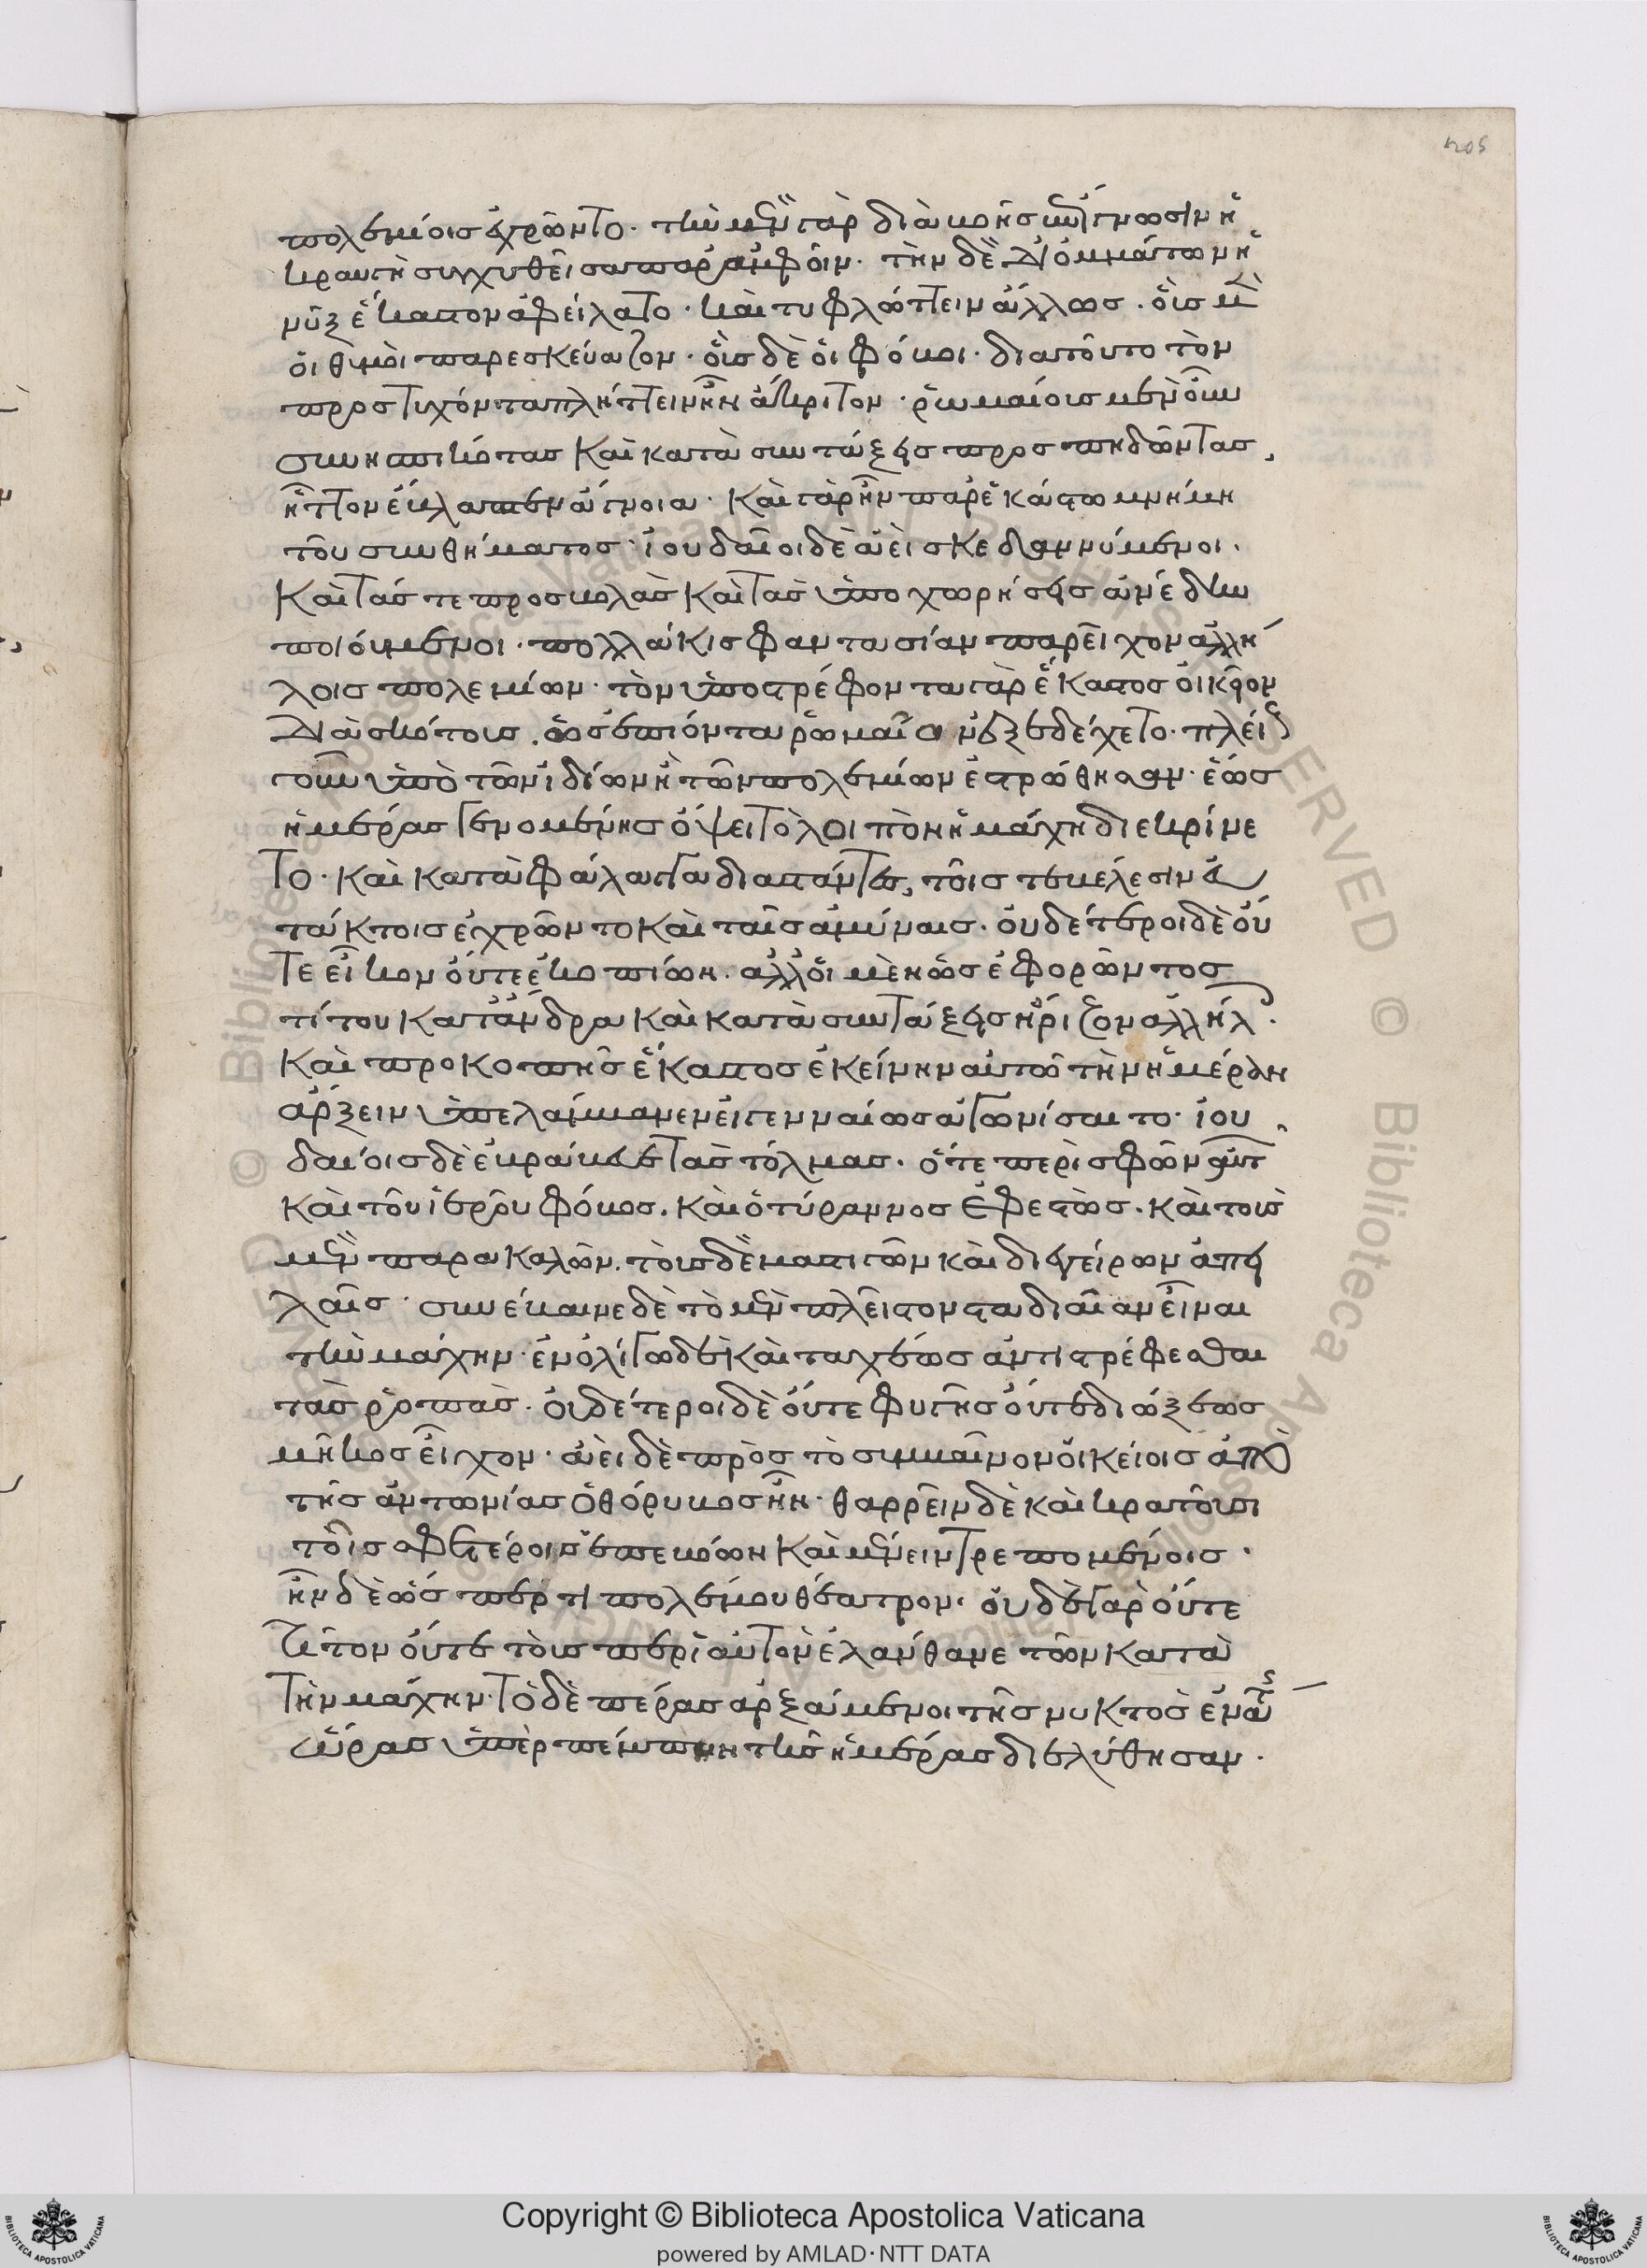 πολεμίοις ἐχρῶντο. τὴν μὲν γὰρ διὰ βοῆς ἐπίγνωσιν ἡ
κραυγὴ συγχυθεῖσα παρ' ἀμφοῖν. τὴν δὲ δι' ὀμμάτων ἡ
νὺξ ἕκαστον ἀφείλατο. καὶ τυφλώττειν ἄλλως. οὓς μὲν
οἱ θυμοὶ παρεσκεύαζον. οὓς δὲ οἱ φόβοι. διατοῦτο τὸν
προστυχόντα πλήττειν ἦν ἄκριτον. ῥωμαίους μὲν οὖν
συνησπικότας καὶ κατὰ συντάξεις προσπηδῶντας,
ἧττον ἔβλαπτεν ἄγνοια. καὶ γὰρ ἦν παρ' ἑκάστω μνήμη
τοῦ συνθήματος. ἰουδαῖοι δὲ ἀεὶ σκεδαννύμενοι.
καὶ τάς τε προσβολὰς καὶ τὰς ὑποχωρήσεις ἀνέδην
ποιούμενοι. πολλάκις φαντασίαν παρεῖχον ἀλλή
λοις πολεμίων. τὸν ὑποστρέφοντα γὰρ ἕκαστος οἰκεῖον
διὰ σκότους. ὡς ἐπιόντα ῥωμαῖον ἐξεδέχετο. πλείους
γοῦν ὑπὸ τῶν ἰδίων ἢ τῶν πολεμίων ἐτρώθησαν. ἕως
ἡμέρας γενομένης ὄψει τὸ λοιπὸν ἡ μάχη διεκρίνε
το. καὶ κατὰ φάλαγγα διαστάντες, τοῖς τε βέλεσιν εὐ
τάκτοις ἐχρῶντο καὶ ταῖς ἀμύναις. οὐδέτεροι δὲ οὔ
τε εἶκον οὔτε ἐκοπίων. ἀλλ' οἱ μὲν ὡς ἐφορῶντος
τίτου κατ' ἄνδρα καὶ κατὰ συντάξεις ἤριζον ἀλλήλοις.
καὶ προκοπῆς ἕκαστος ἐκείνην αὐτῶ τὴν ἡμέραν
ἄρξειν ὑπελάμβανεν εἰ γενναίως ἀγωνίσαιτο. ἰου
δαίοις δὲ ἐβράβευε τὰς τόλμας. ὅ τε περὶ σφῶν αὐτῶν
καὶ τοῦ ἱεροῦ φόβος. καὶ ὁ τύραννος ἐφεστὼς. καὶ τοὺς
μὲν παρακαλῶν. τοὺς δὲ μαστιγῶν καὶ διεγείρων ἀπει
λαῖς. συνέβαινε δὲ τὸ μὲν πλεῖστον σταδιαίαν εἶναι
τὴν μάχην. ἐν ὀλίγω δὲ καὶ ταχέως ἀντιστρέφεσθαι
τὰς ῥοπὰς. οὐδέτεροι δὲ οὔτε φυγῆς οὔτε διώξεως
μῆκος εἶχον. ἀεὶ δὲ πρὸς τὸ συμβαῖνον οἰκείοις ἀπὸ
τῆς ἀντωνίας ὁ θόρυβος ἦν. θαρρεῖν δὲ καὶ κρατοῦσι
τοῖς σφετέροις ἐπεβόων καὶ μένειν τρεπομένοις.
ἦν δὲ ὥσπερ τι πολέμου θέατρον. οὐδὲ γὰρ οὔτε
τίτον οὔτε τοὺς περὶ αὐτὸν ἐλάνθανε τῶν κατὰ
τὴν μάχην. τὸ δὲ πέρας ἀρξάμενοι τῆς νυκτὸς ἐνάτης
ὥρας ὑπὲρ πέμπτην τῆς ἡμέρας διελύθησαν.
Copyright © Biblioteca Apostolica Vaticana
powered by AMLAD·NTT DATA